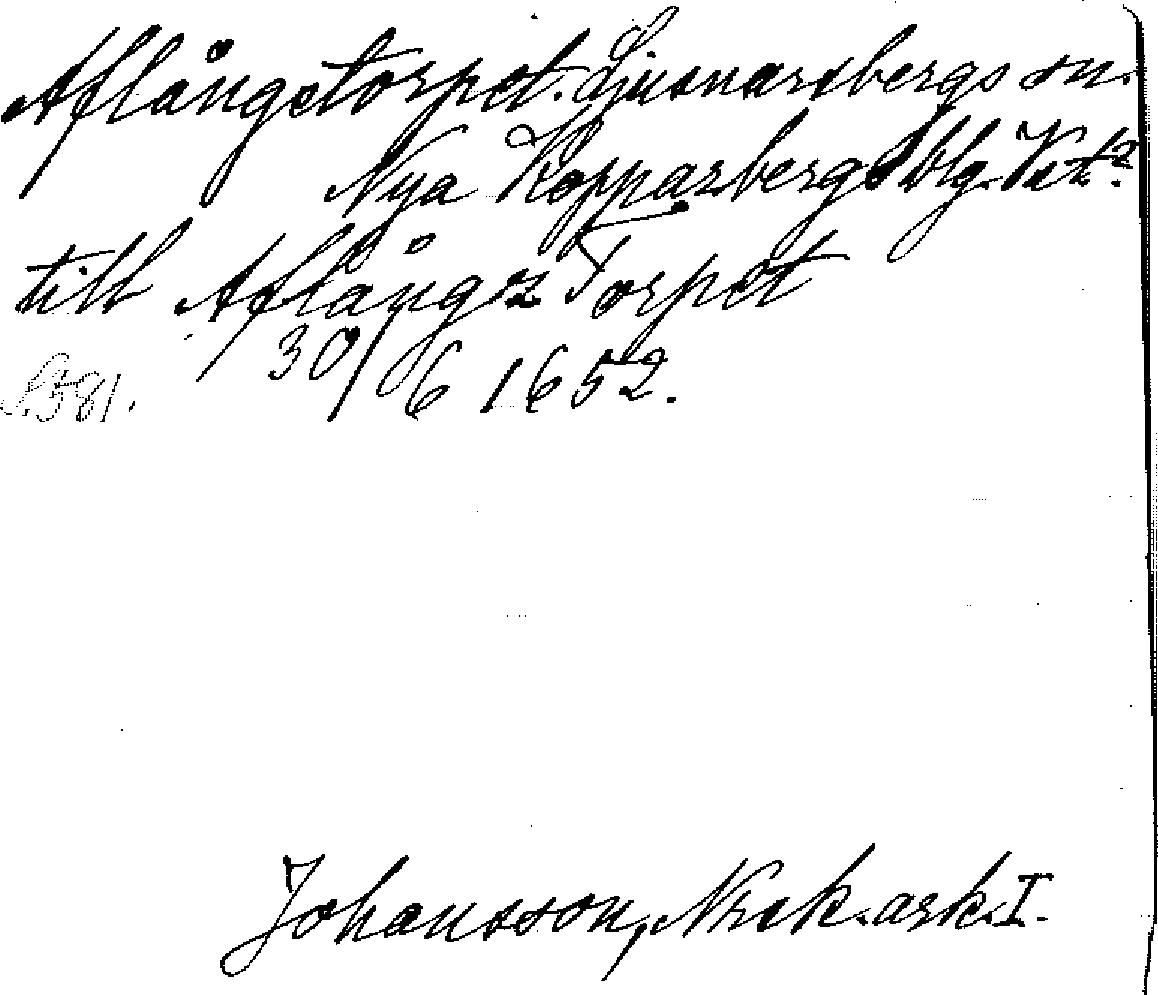 Aflångstorpet. Ljusnarsbergs sn.
Nya Kopparbergs blg. Vst.
till Aflångz Torpet
30/6 1652.
S. 581.
Johansson, Nrsk. ark. I.